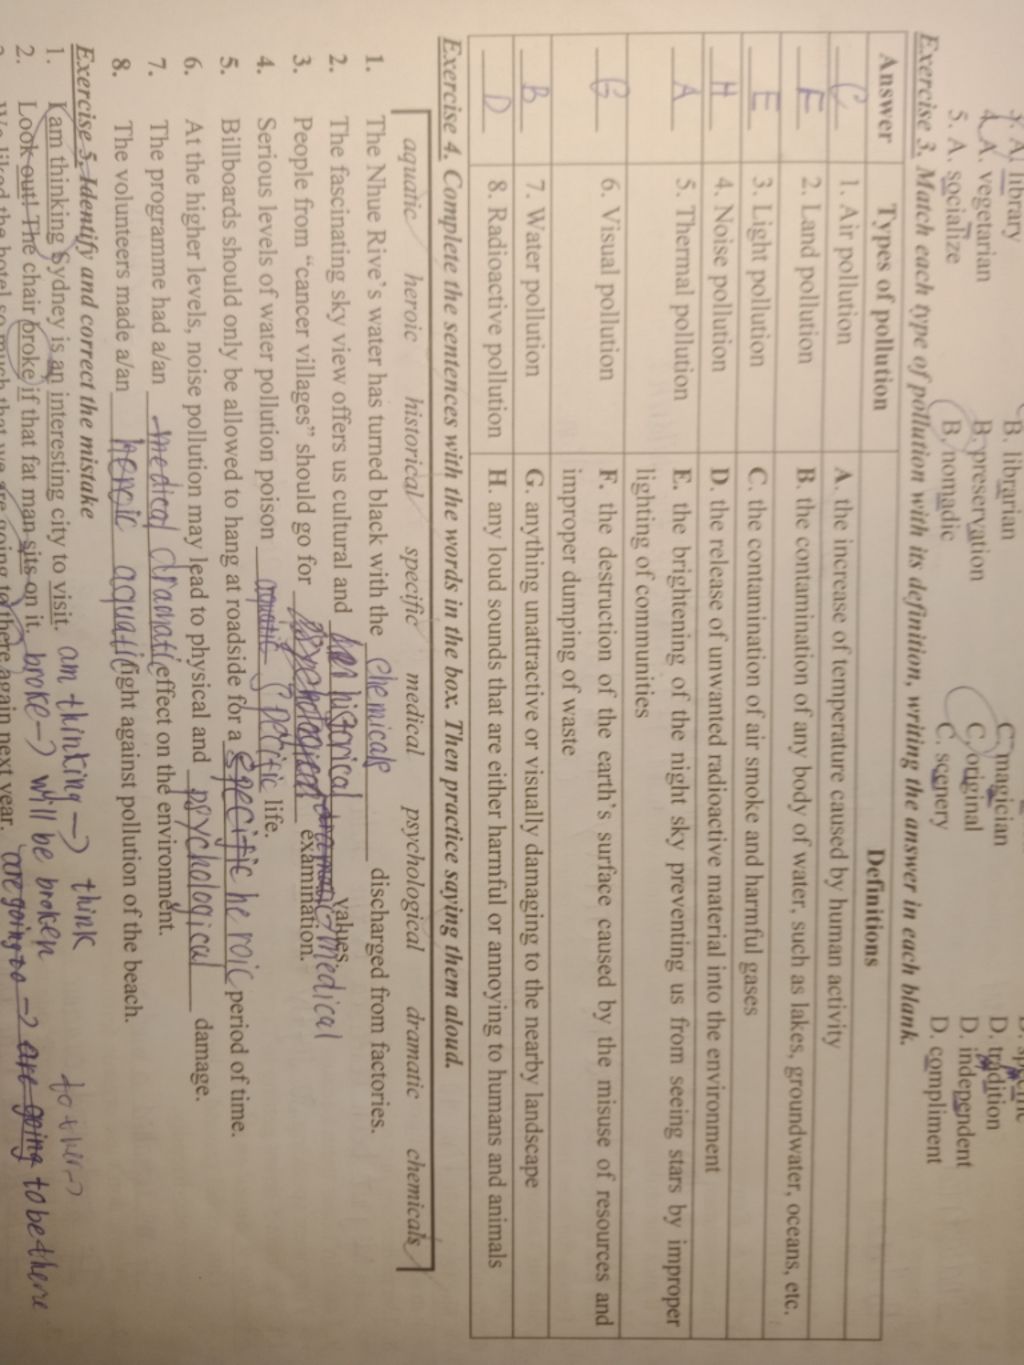 3. A. library B. librarian C. magician
4. A. vegetarian B. preservation C. original D. tradition
5. A. socialize B. nomadic C. scenery D. independent
D. compliment
Exercise 3. Match each type of pollution with its definition, writing the answer in each blank.
Answer Types of pollution Definitions
C 1. Air pollution A. the increase of temperature caused by human activity
E 2. Land pollution B. the contamination of any body of water, such as lakes, groundwater, oceans, etc.
E 3. Light pollution C. the contamination of air smoke and harmful gases
H 4. Noise pollution D. the release of unwanted radioactive material into the environment
A 5. Thermal pollution E. the brightening of the night sky preventing us from seeing stars by improper
lighting of communities
G 6. Visual pollution F. the destruction of the earth's surface caused by the misuse of resources and
improper dumping of waste
B 7. Water pollution G. anything unattractive or visually damaging to the nearby landscape
D 8. Radioactive pollution H. any loud sounds that are either harmful or annoying to humans and animals
Exercise 4. Complete the sentences with the words in the box. Then practice saying them aloud.
aquatic heroic historical specific medical psychological dramatic chemicals
1. The Nhue Rive's water has turned black with the chemicals discharged from factories.
2. The fascinating sky view offers us cultural and historical values.
3. People from "cancer villages" should go for psychological medical examination.
4. Serious levels of water pollution poison aquatic specific life.
5. Billboards should only be allowed to hang at roadside for a specific heroic period of time.
6. At the higher levels, noise pollution may lead to physical and psychological damage.
7. The programme had a/an medical dramatic effect on the environment.
8. The volunteers made a/an heroic aquatic fight against pollution of the beach.
Exercise 5. Identify and correct the mistake
1. I am thinking Sydney is an interesting city to visit. am thinking -> think
2. Look out! The chair broke if that fat man sits on it. broke -> will be broken
liked the hotel so much that we are going to there again next year. are going to -> are going to be there